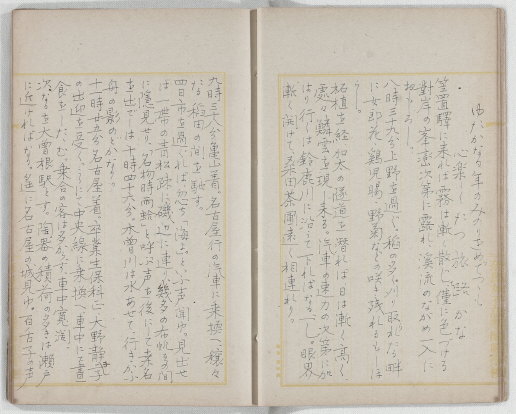 ゆたかなる年のみのりをめでつゝ
心楽したつ旅路かな
笠置驛に来れば霧は漸く散じ僅に色づける
對岸の峯巒次第に露れ、溪流のながめ一入に
おもしろし。
八時三九分上野を過ぐ。稲の多くは取れたる畔
に女郎花、鶏児腸、野菊などの咲き残れるもをか
し。
柘植を経、加太の隧道を潜れば日は漸く高く
處々鱗雲を現し来る。汽車の速力の次第に加
はり行くは鈴鹿川に沿て下ればなるべし。眼界
漸く開けて桑田茶圃遠く相連れり。
九時三六分亀山着、名古屋行の汽車に乗換へ穣々
たる稲田の間を馳す。
四日市を過ぐれば忽ち「海よ」といふ声聞ゆ。見出せ
ば一帯の青松跡に磯辺に連り幾多の布帆其間
に隠見せり。名物時雨蛤と呼ぶ声を後にして桑名
を出でしは十時四十六分、木曽川は水あせて行きかふ
舟の影のどかなり。
十一時廿五分名古屋着、卒業生保科(旧大野)静子氏
の出迎を受く。こゝにて中央線に乗換へ車中にて昼
食をしたゝむ。乗合の客は多からず車中寛濶
次なるを大曽根駅とす。陶器の積荷の多きは瀬戸
に近ければなり。遙に名古屋の城見ゆ。百舌子の声